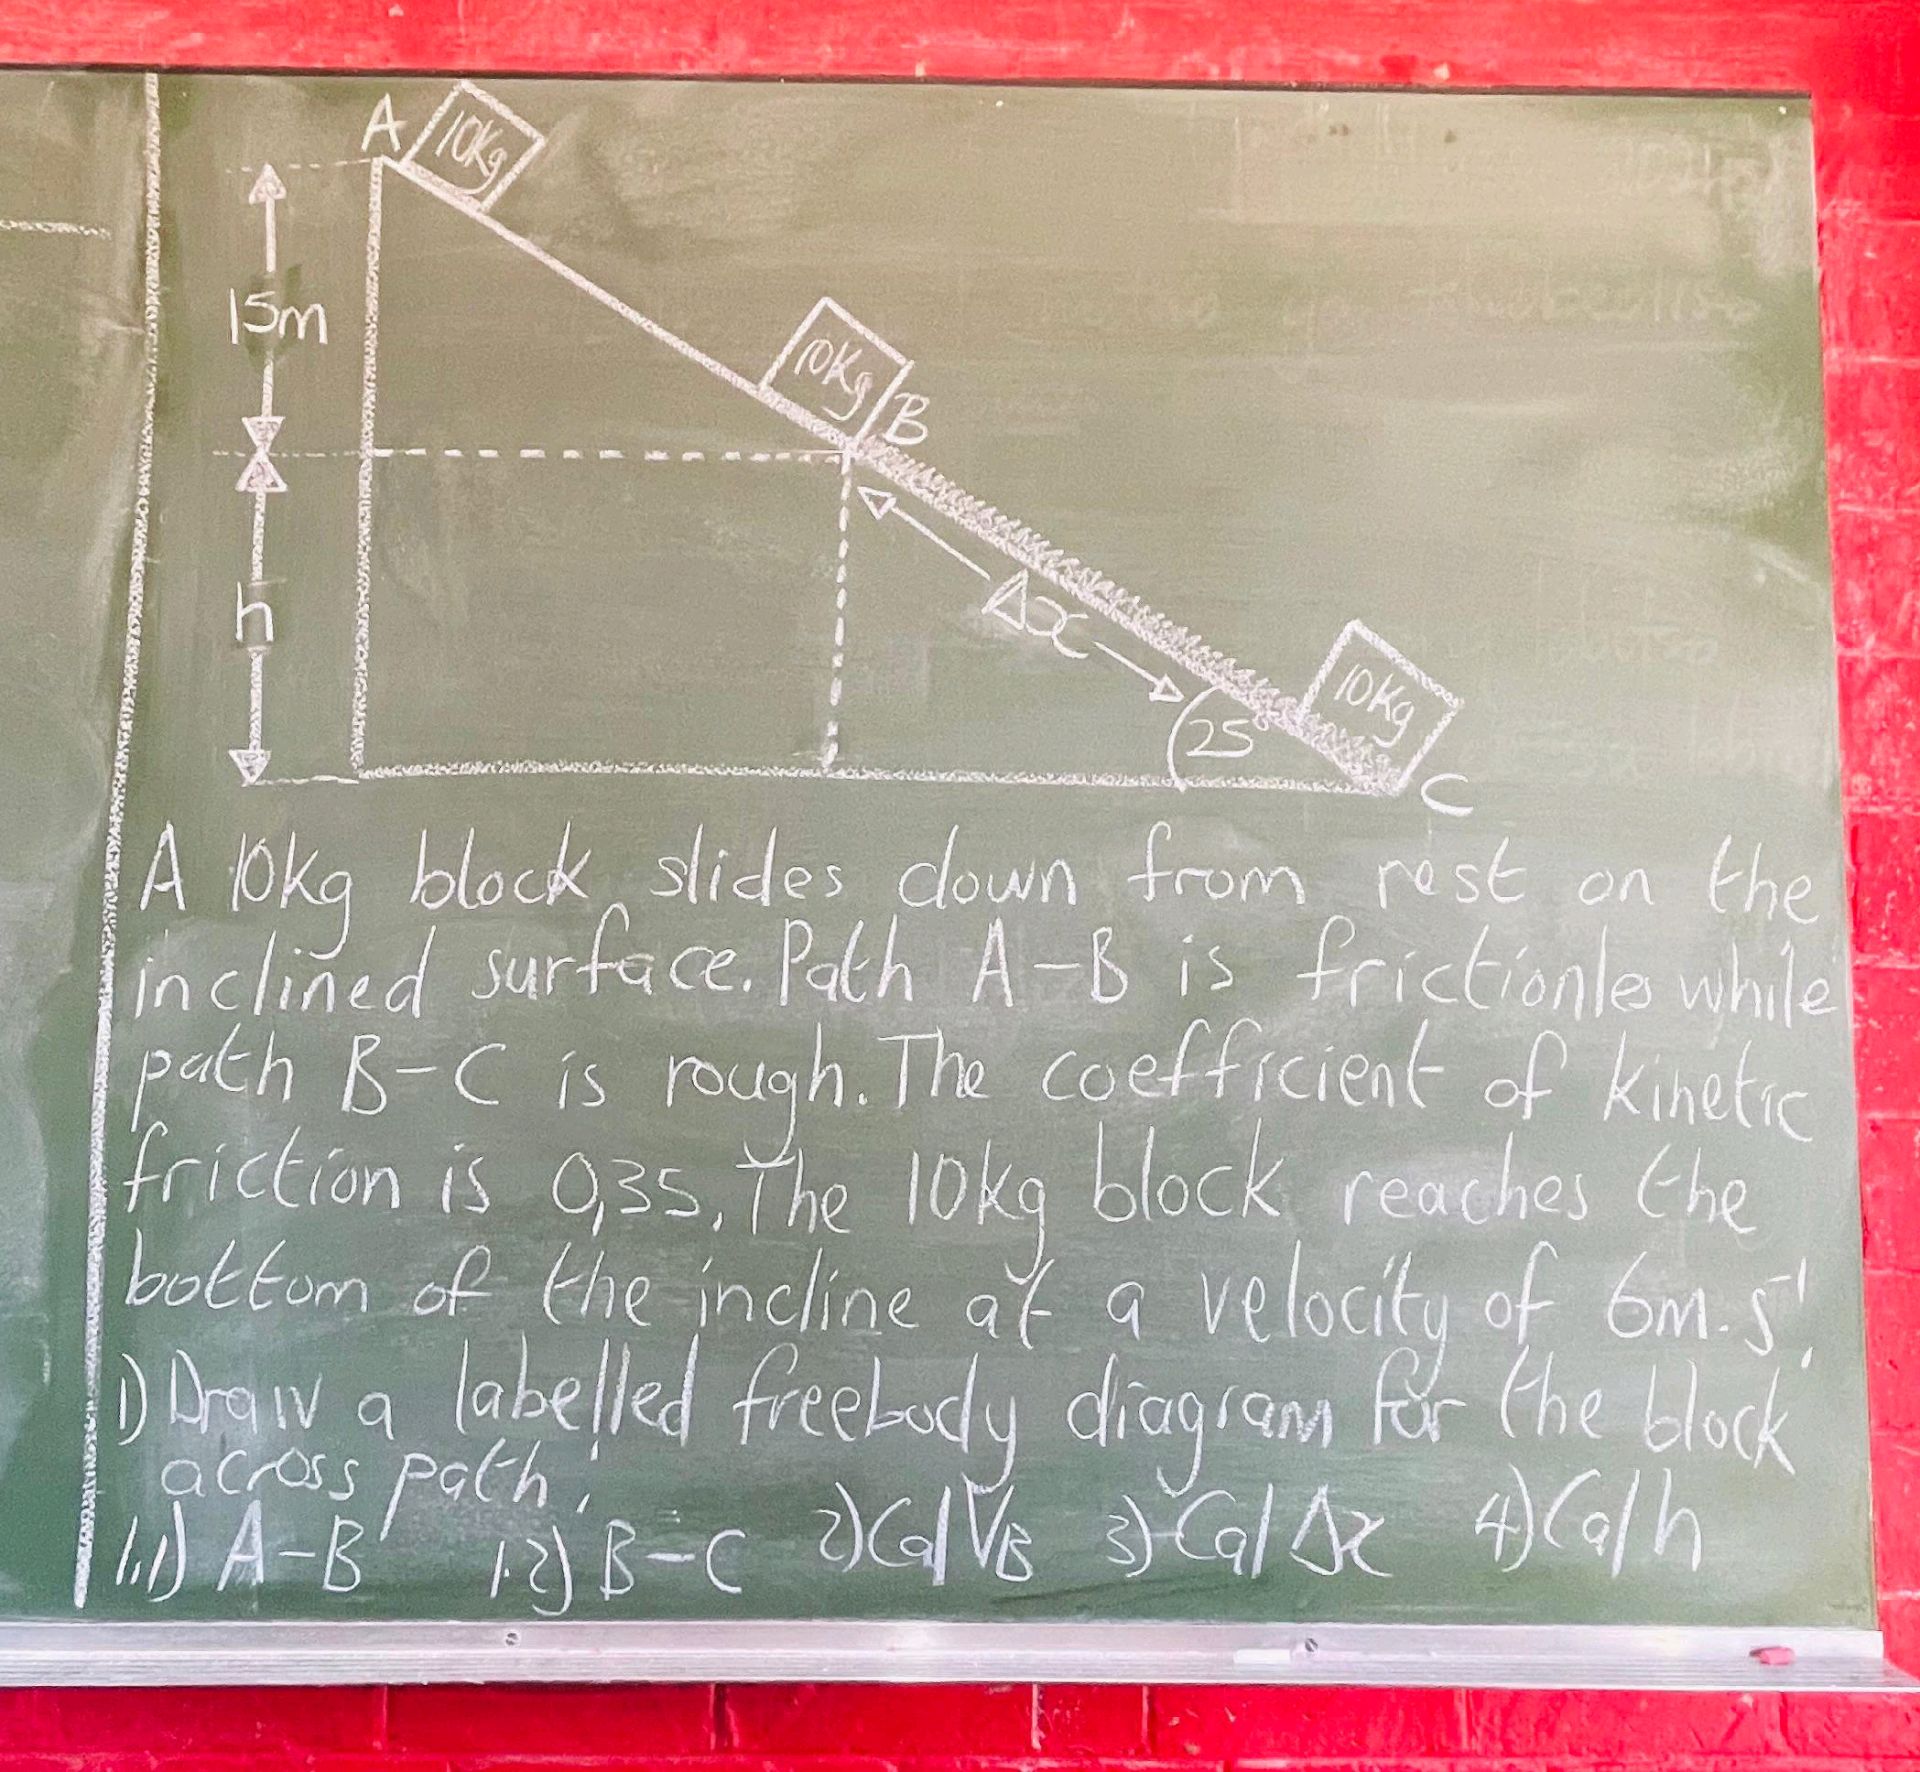 A
10kg
15m
10kg
B
h
Δx
10kg
25°
C
A 10kg block slides down from rest on the
inclined surface. Path A-B is frictionles while
path B-C is rough. The coefficient of kinetic
friction is 0,35. The 10kg block reaches the
bottom of the incline at a velocity of 6m.s⁻¹.
1) Draw a labelled freebody diagram for the block
across path:
1.1) A-B 1.2) B-C 2) Cal VB 3) Cal Δx 4) Cal h